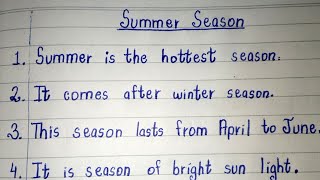 Summer Season
1. Summer is the hottest season.
2. It comes after winter season.
3. This season lasts from April to June.
4. It is season of bright sun light.